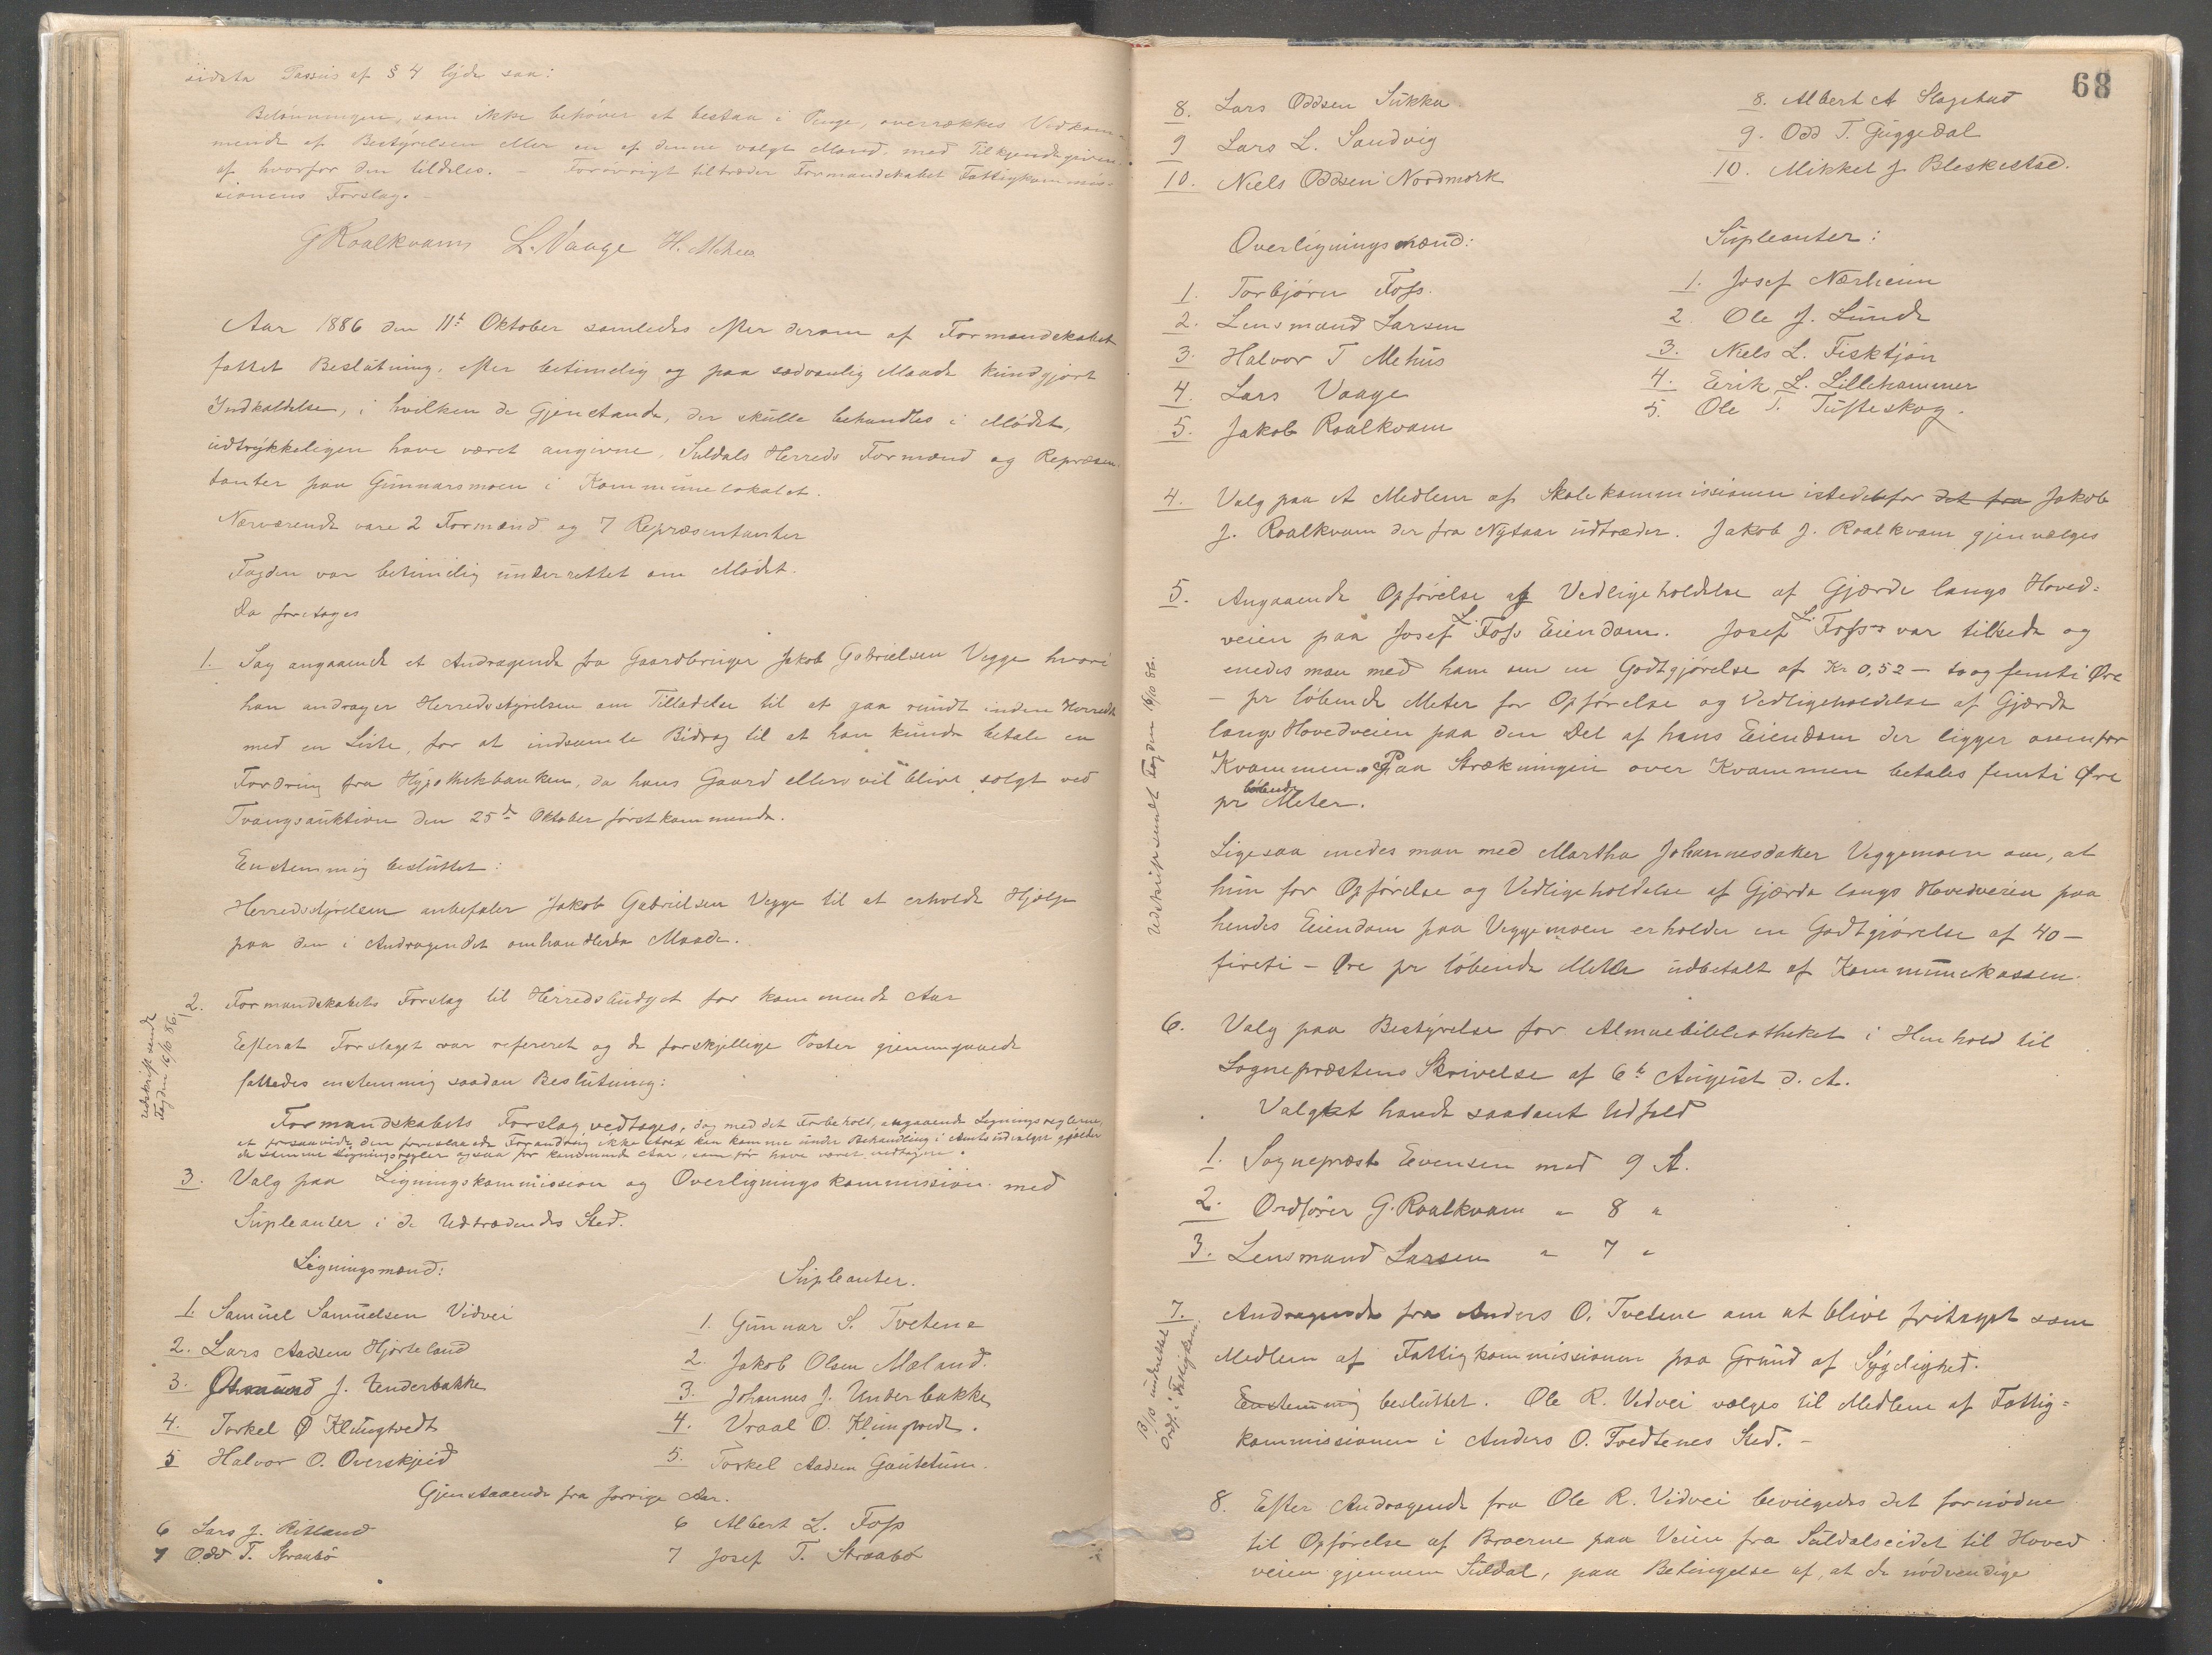 sidste Passus af § 4 lyde saa:
Belønningen, som ikke behøver at bestaa i Penge, overrækkes Vedkom-
mende af Bestyrelsen eller en af denne valgt Mand, med Tilkjendegivende
af hvorfor den tildeles. - Forøvrigt tiltræder Formandskabet Fattigkommis-
sionens Forslag. -
G Roalkvam L. Vaage H. Mehus
Aar 1886 den 11te Oktober samledes efter derom af Formandskabet
fattet Beslutning, efter betimelig og paa sædvanlig Maade kundgjort
Indkaldelse, i hvilken de Gjenstande, der skulle behandles i Mødet,
udtrykkeligen have været angivne, Suldals Herreds Formænd og Repræsen-
tanter paa Gunnarsmoen i Kommunelokalet.
Nærværende vare 2 Formænd og 7 Repræsentanter
Fogden var betimelig underrettet om Mødet.
Da foretoges
1. Sag angaaende et Andragende fra Gaardbruger Jakob Gabrielsen Vegge hvori
han andrager Herredsstyrelsen om Tilladelse til at gaa rundt inden Herredet
med en Liste, for at indsamle Bidrag til at han kunde betale en
Fordring fra Hypothekbanken, da hans Gaard ellers vil blive solgt ved
Tvangsauktion den 25de Oktober førstkommende.
Eenstemmig besluttet:
Herredsstyrelsen anbefaler Jakob Gabrielsen Vegge til at erholde Hjælp
paa den i Andragendet omhandlede Maade.
Udskrift sendt
Fogden 16/10 86.
2. Formandskabets Forslag til Herredsbudget for kommende Aar
Efterat Forslaget var refereret og de forskjellige Poster gjennemgaaede
fattedes enstemmig saadan Beslutning:
Formandskabets Forslag vedtages, dog med det Forbehold, angaaende Ligningsreglerne,
at forsaavidt den foreslaaede Forandring ikke strax kan komme under Behandling i Amtsudvalget gjælder
de samme Ligningsregler ogsaa for kommende Aar, som før have været vedtagne.
3. Valg paa Ligningskommission og Overligningskommission med
Supleanter i de Udtrædendes Sted.
Ligningsmænd:
1. Samuel Samuelsen Vidvei
2. Lars Aadsen Hjorteland
3. Osmund J. Underbakke
4. Torkel Ø Klungtvedt
5 Halvor O. Overskjeid
Supleanter.
1. Gunnar S. Tvetene
2. Jakob Olsen Mæland.
3. Johannes J. Underbakke
4. Vraal O. Klungtvedt.
5. Torkel Aadsen Gautetun.
Gjenstaaende fra forrige Aar.
6 Lars J. Ritland
7 Odd T. Straabø
6 Albert L. Foss
7 Josef T. Straabø
68
8. Lars Oddsen Sukka
9 Lars L. Sandvig
10. Niels Oddsen Nordmork
8. Albert A Slagstad
9. Odd T. Guggedal
10. Mikkel J. Bleskestad.
Overligningsmænd:
1. Torbjørn Foss.
2. Lensmand Larsen
3. Halvor T Mehus
4. Lars Vaage
5. Jakob Roalkvam
Supleanter:
1. Josef Nærheim
2. Ole J. Lunde
3. Niels L. Fisktjøn
4. Eerik L. Lillehammer
5. Ole T. Tufteskog.
4. Valg paa et Medlem af Skolekommissionen istedetfor det fra Jakob
J. Roalkvam der fra Nytaar udtræder. Jakob J. Roalkvam gjenvælges
Udskrift sendt Fogden 16/10 86.
5. Angaaende Opførelse af Vedligeholdelse af Gjærde langs Hoved-
veien paa Josef L. Foss Eiendom. Josef L. Foss var tilstede og
enedes man med ham om en Godtgjørelse af Kr 0,52 - to og femti Øre
- pr løbende Meter for Opførelse og Vedligeholdelse af Gjærde
langs Hovedveien paa den Del af hans Eiendom der ligger ovenfor
Kvammen. Paa Strækningen over Kvammen betales femti Øre
pr løbende Meter.
Ligesaa enedes man med Martha Johannesdatter Veggemoen om, at
hun for Opførelse og Vedligeholdelse af Gjærde langs Hovedveien paa
hendes Eiendom paa Veggemoen erholder en Godtgjørelse af 40 -
fireti - Øre pr løbende Meter udbetalt af Kommunekassen.
6. Valg paa Bestyrelse for Almuebibliotheket i Henhold til
Sognepræstens Skrivelse af 6te August d. A.
Valget havde saadant Udfald
1. Sognepræst Eevensen med 9 St.
2. Ordfører G. Roalkvam " 8 "
3. Lensmand Larsen " 7 "
13/10 underrettet
Ordf. i Fattigkom.
7. Andragende fra Anders O. Tvetene om at blive fritaget som
Medlem af Fattigkommissionen paa Grund af Sygelighed.
Eenstemmig besluttet. Ole R. Vidvei vælges til Medlem af Fattig-
kommissionen i Anders O. Tvedtenes Sted. -
8. Efter Andragende fra Ole R. Vidvei bevilgedes det fornødne
til Opførelse af Broerne paa Veien fra Suldalseidet til Hoved
veien gjennem Suldal, paa Betingelse af, at de nødvendige